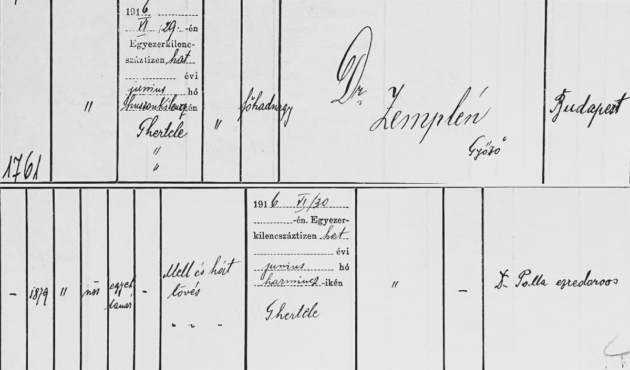 1916
VI /29.-én
Egyezerkilenc-
száztizen hat
évi
junius hó
huszonkilenc-én
Ghertele
"
"
1761
"
"
főhadnagy
Dr. Zemplén
Győző
Budapest
1916 VI/30
-én. Egyezer-
kilencszáztizen hat
évi
junius hó
harminc-ikén
Ghertele
-
1879
"
nős
egyet.
tanár
-
Mell és hát
lövés
" "
"
-
Dr. Polla ezredorvos